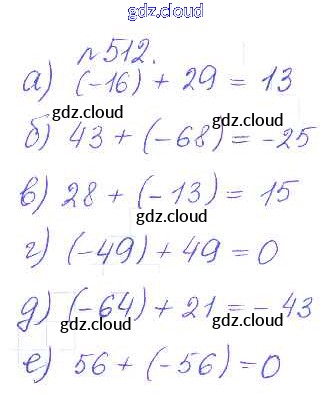 gdz.cloud
№512.
а) (-16) + 29 = 13
gdz.cloud gdz.cloud
б) 43 + (-68) = -25
gdz.cloud
в) 28 + (-13) = 15
gdz.cloud
г) (-49) + 49 = 0
gdz.cloud
д) (-64) + 21 = - 43
gdz.cloud gdz.cloud
е) 56 + (-56) = 0
gdz.cloud